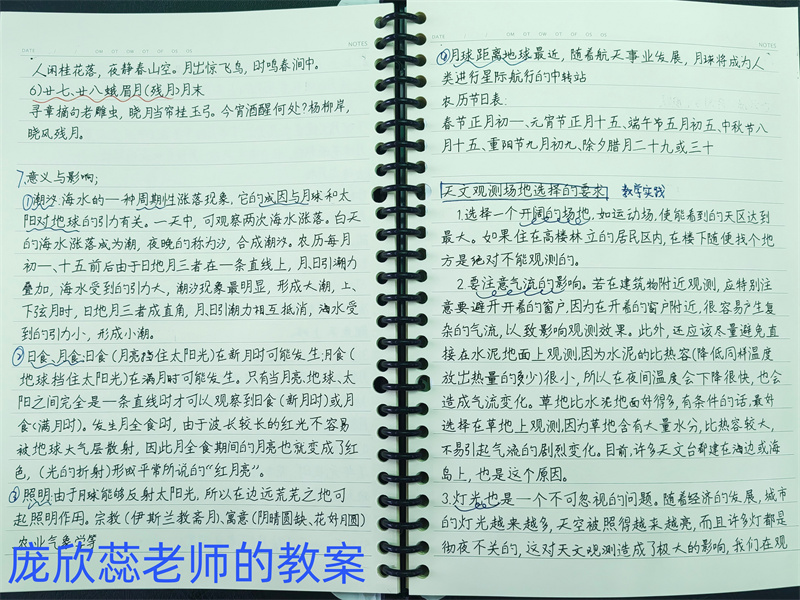 DATE
NOTES
人闲桂花落，夜静春山空。月出惊飞鸟，时鸣春涧中。
6)廿七、廿八蛾眉月(残月)月末
寻章摘句老雕虫，晓月当帘挂玉弓。今宵酒醒何处?杨柳岸，
晓风残月。
7.意义与影响;
①潮汐 海水的一种周期性涨落现象，它的成因与月球和太
阳对地球的引力有关。一天中，可观察两次海水涨落。白天
的海水涨落成为潮，夜晚的称为汐，合成潮汐。农历每月
初一、十五前后由于日地月三者在一条直线上，月、日引潮力
叠加，海水受到的引力大，潮汐现象最明显，形成大潮，上、
下弦月时，日地月三者成直角，月、日引潮力相互抵消，海水受
到的引力小，形成小潮。
②日食、月食:日食(月亮挡住太阳光)在新月时可能发生;月食(
地球挡住太阳光)在满月时可能发生。只有当月亮、地球、太
阳之间完全是一条直线时才可以观察到日食(新月时)或月
食(满月时)。发生月全食时，由于波长较长的红光不容易
被地球大气层散射，因此月全食期间的月亮也就变成了红
色，(光的折射)形成平常所说的“红月亮”。
③照明:由于月球能够反射太阳光，所以在边远荒芜之地可
起照明作用。宗教(伊斯兰教斋月)、寓意(阴晴圆缺、花好月圆)
农业气象学等
庞欣蕊老师的教案
DATE
NOTES
④月球距离地球最近，随着航天事业发展，月球将成为人
类进行星际航行的中转站
农历节日表:
春节正月初一、元宵节正月十五、端午节五月初五、中秋节八
月十五、重阳节九月初九、除夕腊月二十九或三十
天文观测场地选择的要求 教学实践
1.选择一个开阔的场地，如运动场，使能看到的天区达到
最大。如果住在高楼林立的居民区内，在楼下随便找个地
方是绝对不能观测的。
2.要注意气流的影响。若在建筑物附近观测，应特别注
意要避开开着的窗户，因为在开着的窗户附近，很容易产生复
杂的气流，以致影响观测效果。此外，还应该尽量避免直
接在水泥地面上观测，因为水泥的比热容(降低同样温度
放出热量的多少)很小，所以在夜间温度会下降很快，也会
造成气流变化。草地比水泥地面好得多，有条件的话，最好
选择在草地上观测，因为草地含有大量水分，比热容较大，
不易引起气流的剧烈变化。目前，许多天文台都建在海边或海
岛上，也是这个原因。
3.灯光也是一个不可忽视的问题。随着经济的发展，城市
的灯光越来越多，天空被照得越来越亮，而且许多灯都是
彻夜不关的，这对天文观测造成了极大的影响，我们在观